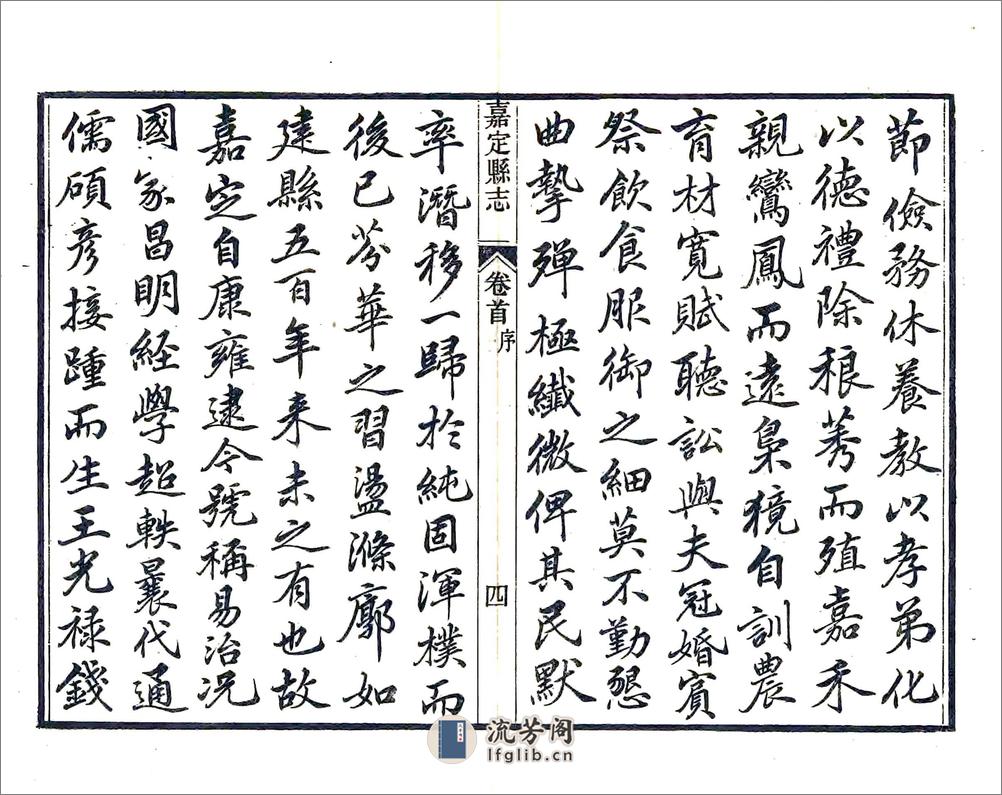 節儉務休養教以孝弟化
以德禮除稂莠而殖嘉禾
親鸞鳳而遠梟獍自訓農
育材寬賦聽訟與夫冠婚賓
祭飲食服御之細莫不勤懇
曲摯殫極纖微俾其民默
嘉定縣志
卷首
序
四
率潛移一歸於純固渾樸而
後已芬華之習盪滌廓如
建縣五百年来未之有也故
嘉定自康雍逮今號稱易治况
國家昌明經學超軼曩代通
儒碩彦接踵而生王光禄錢
流芳阁
lfglib.cn